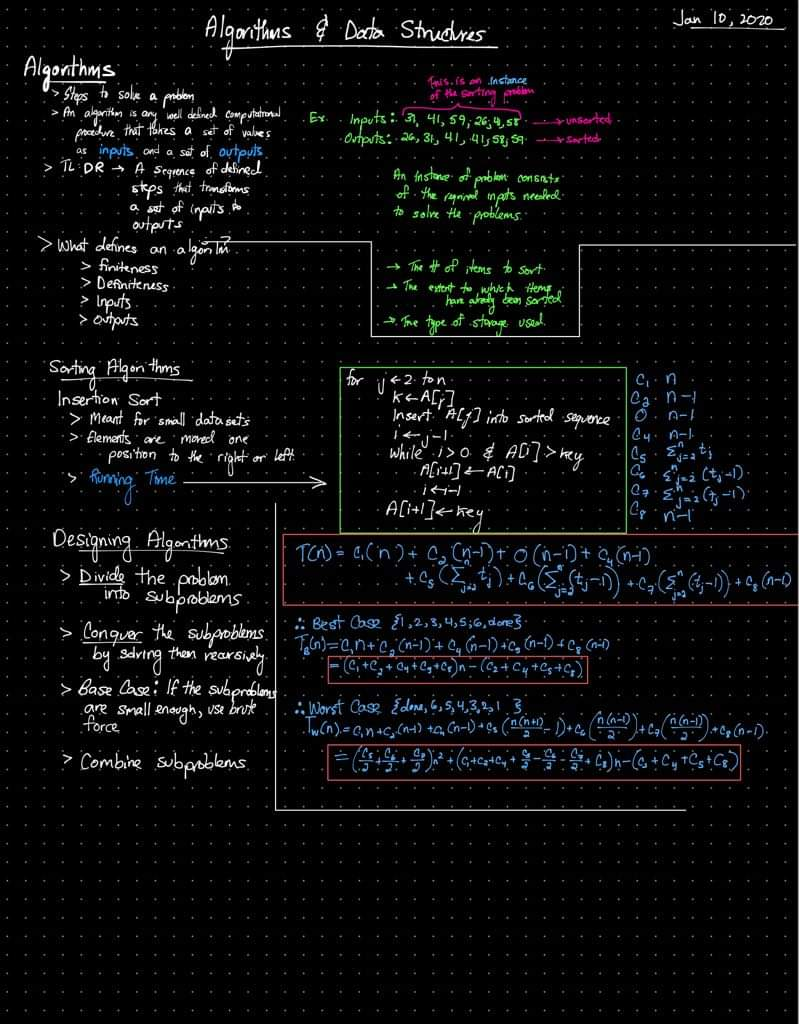 Jan 10, 2020
Algorithms & Data Structures
Algorithms
> Steps to solve a problem
> An algorithm is any well defined computational
procedure that takes a set of values
as inputs and a set of outputs
> TL:DR → A sequence of defined
steps that transforms
a set of inputs to
outputs
> What defines an algorithm?
> finiteness
> Definiteness
> Inputs
> Outputs
This is an instance
of the sorting problem
Ex. Inputs: 31, 41, 59, 26, 4, 58 → unsorted
Outputs: 26, 31, 41, 41, 58, 59 → sorted
An instance of problem consists
of the required inputs needed
to solve the problems.
→ The # of items to sort
→ The extent to which items
have already been sorted
→ The type of storage used
Sorting Algorithms
Insertion Sort
> Meant for small datasets
> Elements are moved one
position to the right or left.
> Running Time
for j ← 2 to n
K ← A[j]
Insert A[j] into sorted sequence
i ← j-1
while i > 0 & A[i] > key
A[i+1] ← A[i]
i ← i-1
A[i+1] ← key
C₁ n
C₂ n-1
0 n-1
C₄ n-1
C₅ Σⁿⱼ₌₂ tⱼ
C₆ Σⁿⱼ₌₂ (tⱼ-1)
C₇ Σⁿⱼ₌₂ (tⱼ-1)
C₈ n-1
Designing Algorithms
> Divide the problem
into subproblems
> Conquer the subproblems
by solving them recursively
> Base Case: If the subproblems
are small enough, use brute
force
> Combine subproblems
T(n) = C₁(n) + C₂(n-1) + 0(n-1) + C₄(n-1)
+ C₅(Σⁿⱼ₌₂ tⱼ) + C₆(Σⁿⱼ₌₂(tⱼ-1)) + C₇(Σⁿⱼ₌₂(tⱼ-1)) + C₈(n-1)
∴ Best Case {1, 2, 3, 4, 5, 6, done}
T_B(n) = C₁n + C₂(n-1) + C₄(n-1) + C₅(n-1) + C₈(n-1)
= (C₁+C₂+C₄+C₅+C₈)n - (C₂+C₄+C₅+C₈)
∴ Worst Case {done, 6, 5, 4, 3, 2, 1}
T_W(n) = C₁n + C₂(n-1) + C₄(n-1) + C₅(n(n+1)/2 - 1) + C₆(n(n-1)/2) + C₇(n(n-1)/2) + C₈(n-1)
= (C₅/2 + C₆/2 + C₇/2)n² + (C₁+C₂+C₄+ C₅/2 - C₆/2 - C₇/2 + C₈)n - (C₂+C₄+C₅+C₈)